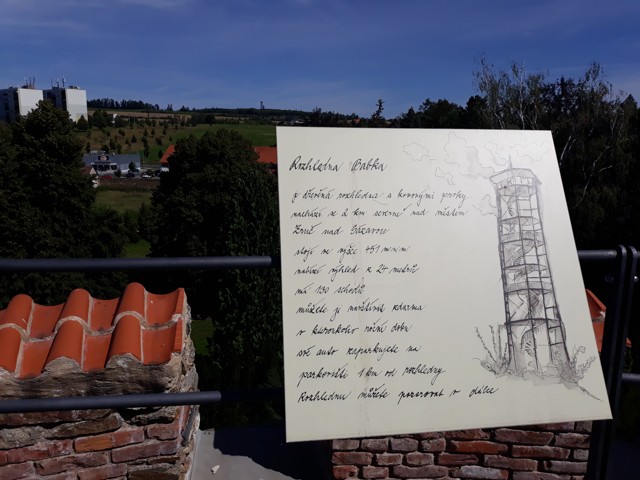 Rozhledna Babka
je dřevěná rozhledna s kovovými prvky
nachází se 2 km severně nad městem
Zruč nad Sázavou
stojí ve výšce 451 m n. m
nabízí výhled z 24 metrů
má 130 schodů
můžete ji navštívit zdarma
v kteroukoliv roční dobu
své auto zaparkujete na
parkovišti 1 km od rozhledny
Rozhlednu můžete pozorovat v dálce